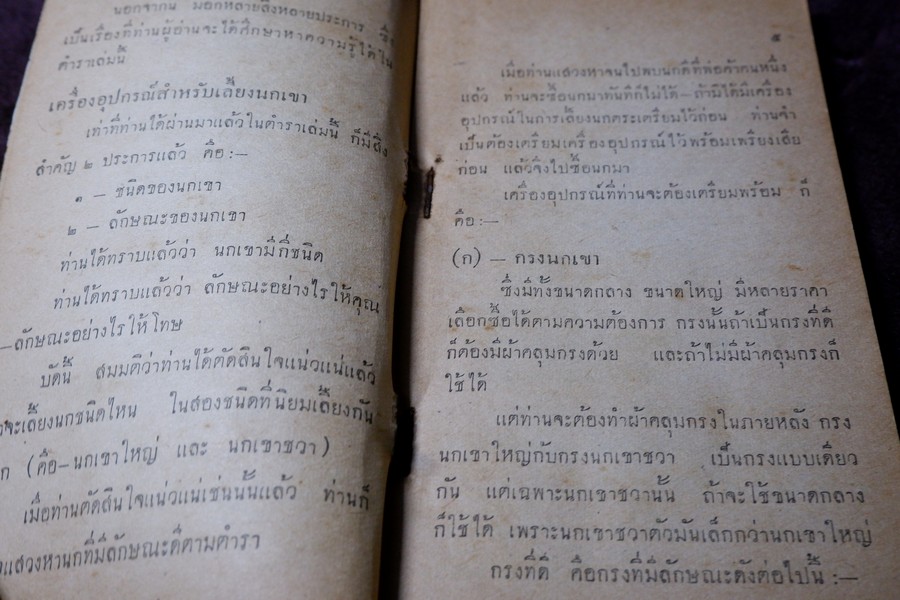 นอกจากน มอกหลายสิ่งหลายประการ ซึ่ง
เป็นเรื่องที่ท่านผู้อ่านจะได้ศึกษาหาความรู้ได้ใน
ตำราเล่มนี้
เครื่องอุปกรณ์สำหรับเลี้ยงนกเขา
เท่าที่ท่านได้ผ่านมาแล้วในตำราเล่มนี้ ก็มีสิ่ง
สำคัญ ๒ ประการแล้ว คือ :—
๑ — ชนิดของนกเขา
๒ — ลักษณะของนกเขา
ท่านได้ทราบแล้วว่า นกเขามีกี่ชนิด
ท่านได้ทราบแล้วว่า ลักษณะอย่างไรให้คุณ
—ลักษณะอย่างไรให้โทษ
บัดนี้ สมมติว่าท่านได้ตัดสินใจแน่วแน่แล้ว
จะเลี้ยงนกชนิดไหน ในสองชนิดที่นิยมเลี้ยงกัน
ก (คือ—นกเขาใหญ่ และ นกเขาชวา)
เมื่อท่านตัดสินใจแน่วแน่เช่นนั้นแล้ว ท่านก็
แสวงหานกที่มีลักษณะดีตามตำรา
๕
เมื่อท่านแสวงหาจนไปพบนกดีที่พ่อค้าคนหนึ่ง
แล้ว ท่านจะซื้อนกมาทันทีก็ไม่ได้—ถ้ามิได้มีเครื่อง
อุปกรณ์ในการเลี้ยงนกตระเตรียมไว้ก่อน ท่านจำ
เป็นต้องเตรียมเครื่องอุปกรณ์ไว้พร้อมเพรียงเสีย
ก่อน แล้วจึงไปซื้อนกมา
เครื่องอุปกรณ์ที่ท่านจะต้องเตรียมพร้อม ก็
คือ :—
(ก) — กรงนกเขา
ซึ่งมีทั้งขนาดกลาง ขนาดใหญ่ มีหลายราคา
เลือกซื้อได้ตามความต้องการ กรงนั้นถ้าเป็นกรงที่ดี
ก็ต้องมีผ้าคลุมกรงด้วย และถ้าไม่มีผ้าคลุมกรงก็
ใช้ได้
แต่ท่านจะต้องทำผ้าคลุมกรงในภายหลัง กรง
นกเขาใหญ่กับกรงนกเขาชวา เป็นกรงแบบเดียว
กัน แต่เฉพาะนกเขาชวานั้น ถ้าจะใช้ขนาดกลาง
ก็ใช้ได้ เพราะนกเขาชวาตัวมันเล็กกว่านกเขาใหญ่
กรงที่ดี คือกรงที่มีลักษณะดังต่อไปนี้ :—